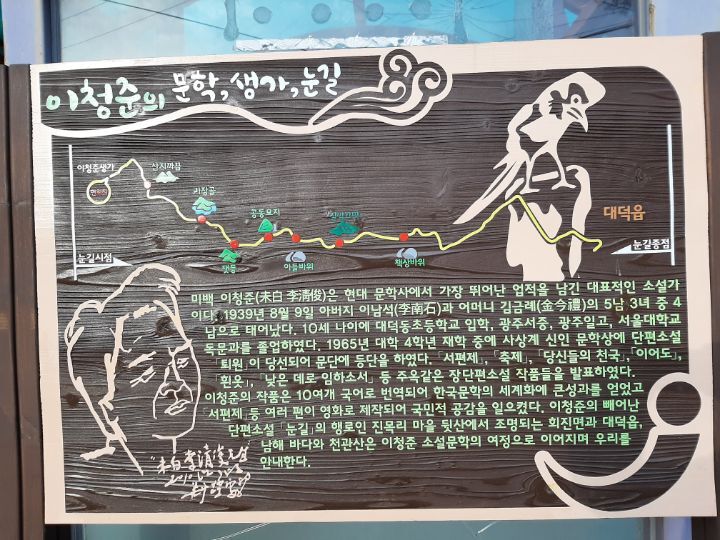 이청준의 문학, 생가, 눈길
이청준생가
현위치
사지까끔
공동묘지
대덕읍
눈길시점
아들바위
책상바위
눈길종점
미백 이청준(未白 李淸俊)은 현대 문학사에서 가장 뛰어난 업적을 남긴 대표적인 소설가
이다. 1939년 8월 9일 아버지 이남석(李南石)과 어머니 김금례(金今禮)의 5남 3녀 중 4
남으로 태어났다. 10세 나이에 대덕동초등학교 입학, 광주서중, 광주일고, 서울대학교
독문과를 졸업하였다. 1965년 대학 4학년 재학 중에 사상계 신인 문학상에 단편소설
「퇴원」이 당선되어 문단에 등단을 하였다. 「서편제」, 「축제」, 「당신들의 천국」, 「이어도」,
「흰옷」, 「낮은 데로 임하소서」 등 주옥같은 장단편소설 작품들을 발표하였다.
이청준의 작품은 10여개 국어로 번역되어 한국문학의 세계화에 큰성과를 얻었고
「서편제」 등 여러 편이 영화로 제작되어 국민적 공감을 일으켰다. 이청준의 빼어난
단편소설 「눈길」의 행로인 진목리 마을 뒷산에서 조명되는 회진면과 대덕읍,
남해 바다와 천관산은 이청준 소설문학의 여정으로 이어지며 우리를
안내한다.